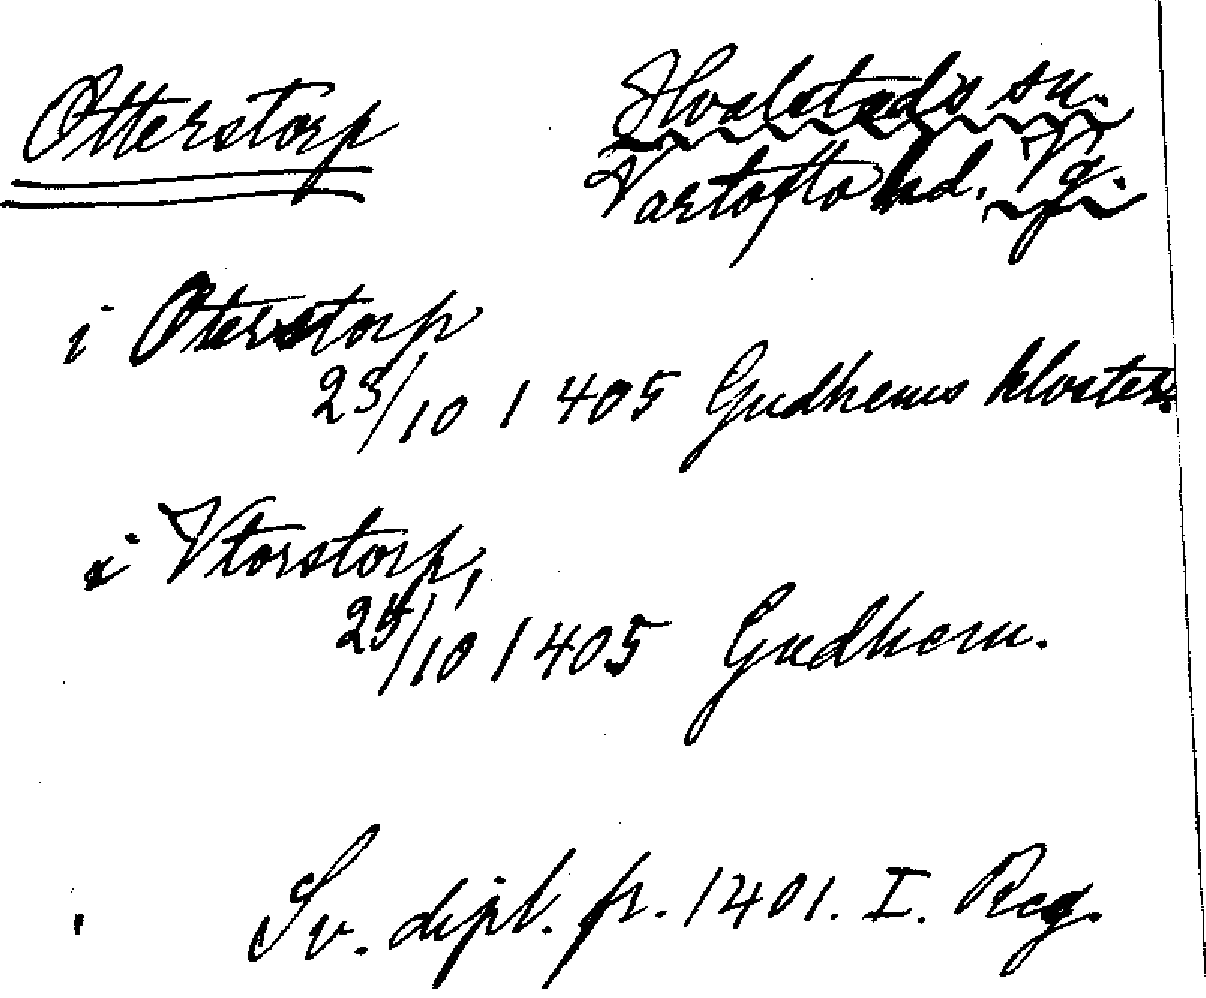 Otterstorp
Hvalstads sn.
Vartofta hd. Vg.
i Oterstorp
23/10 1405 Gudhems kloster.
i Vtorstorp,
25/10 1405 Gudhem.
Sv. dipl. fr. 1401. I. Reg.